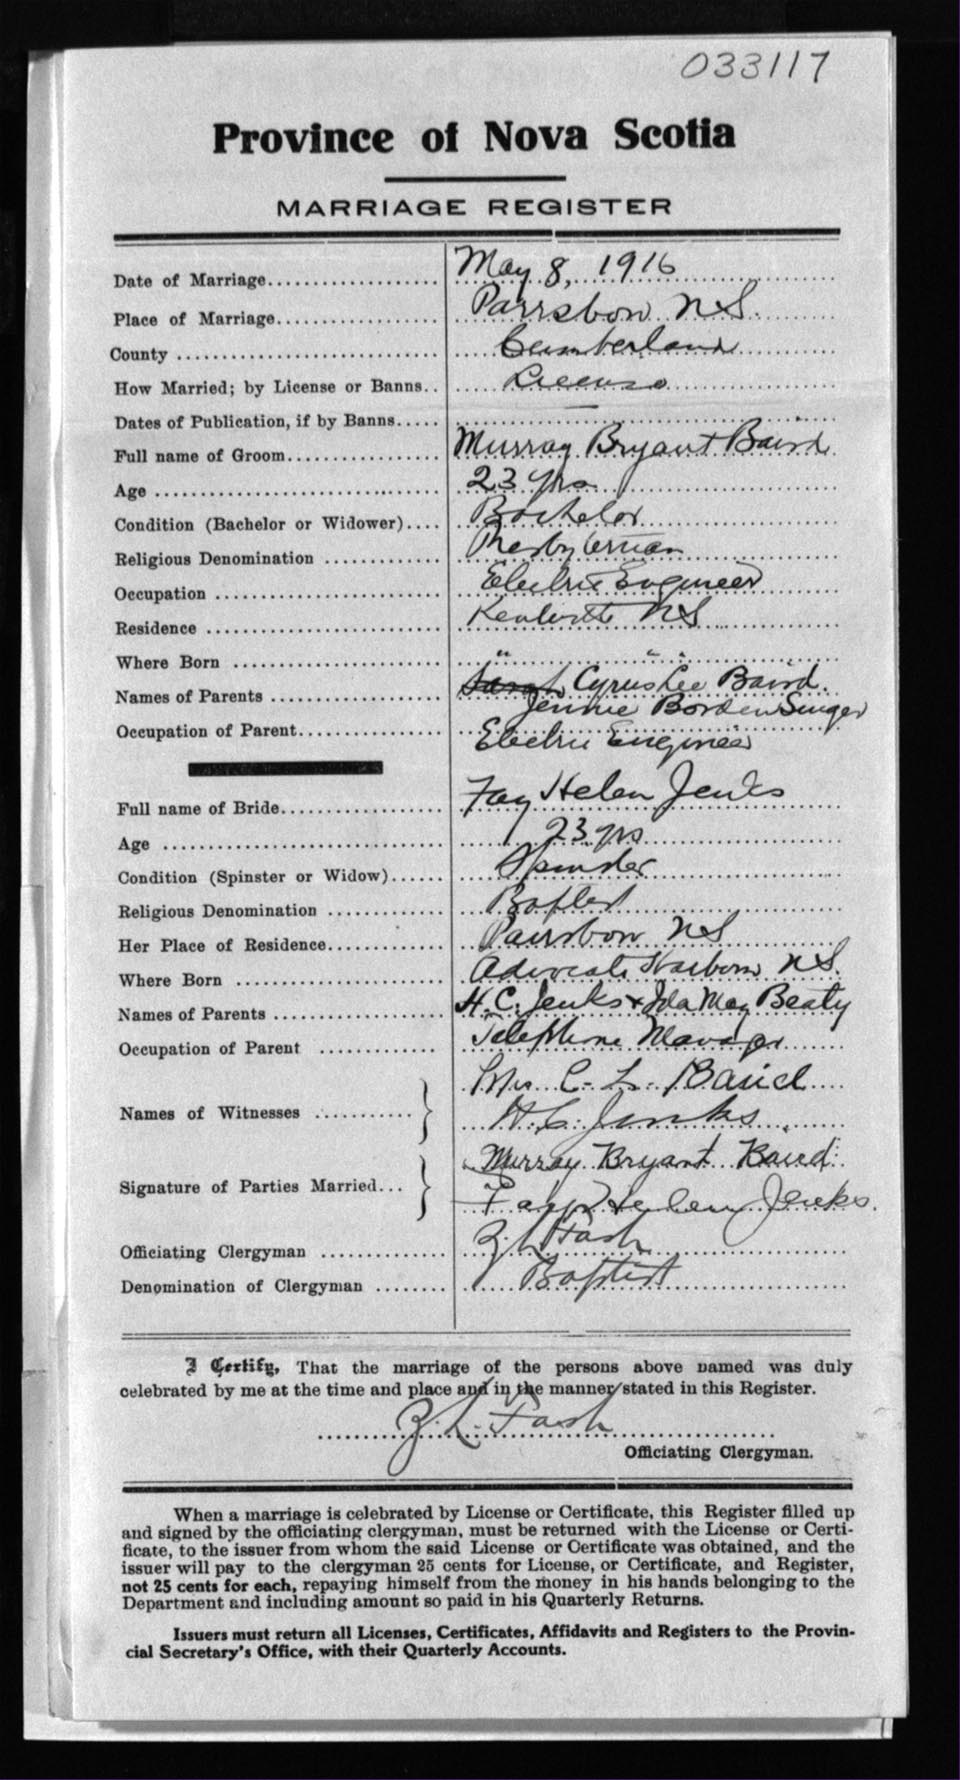 033117
Province of Nova Scotia
MARRIAGE REGISTER
Date of Marriage.................... May 8, 1916
Place of Marriage................... Parrsboro N.S.
County .............................. Cumberland
How Married; by License or Banns.. License
Dates of Publication, if by Banns..... —
Full name of Groom.................. Murray Bryant Baird
Age ................................. 23 yrs
Condition (Bachelor or Widower).... Bachelor
Religious Denomination ............. Presbyterian
Occupation .......................... Electric Engineer
Residence ........................... NS
Where Born ........................ " " "
Names of Parents .................... Sarah Cyrus Lee Baird.
Jennie Borden
Occupation of Parent................ Electric Engineer
Full name of Bride................... Fay Helen Jenks
Age ................................ 23 yrs
Condition (Spinster or Widow)...... Spinster
Religious Denomination ............. Baptist
Her Place of Residence.............. Parrsboro NS
Where Born ......................... Advocate Harbour N.S.
Names of Parents ................... H. C. Jenks & Ida May Beaty
Occupation of Parent ............. Telephone Manager
Names of Witnesses ............ } Mrs C. L. Baird
H. C. Jenks
Signature of Parties Married... } Murray Bryant Baird
Fay Helen Jenks.
Officiating Clergyman ............. Z. L. Fash
Denomination of Clergyman ........ Baptist
I Certify, That the marriage of the persons above named was duly
celebrated by me at the time and place and in the manner stated in this Register.
Z. L. Fash
Officiating Clergyman.
When a marriage is celebrated by License or Certificate, this Register filled up
and signed by the officiating clergyman, must be returned with the License or Certi-
ficate, to the issuer from whom the said License or Certificate was obtained, and the
issuer will pay to the clergyman 25 cents for License, or Certificate, and Register,
not 25 cents for each, repaying himself from the money in his hands belonging to the
Department and including amount so paid in his Quarterly Returns.
Issuers must return all Licenses, Certificates, Affidavits and Registers to the Provin-
cial Secretary's Office, with their Quarterly Accounts.